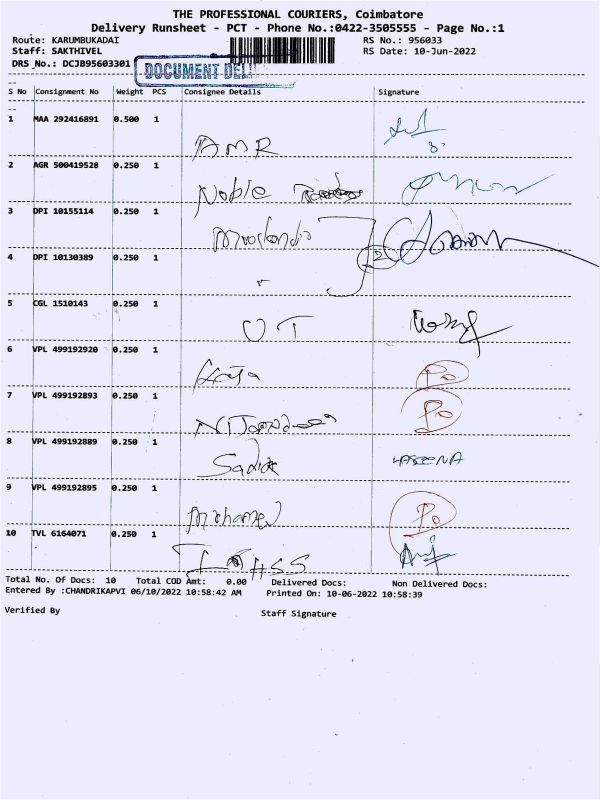 THE PROFESSIONAL COURIERS, Coimbatore
Delivery Runsheet - PCT - Phone No.:0422-3505555 - Page No.:1
Route: KARUMBUKADAI RS No.: 956033
Staff: SAKTHIVEL RS Date: 10-Jun-2022
DRS No.: DCJB95603301
DOCUMENT DEL
S No Consignment No Weight PCS Consignee Details Signature
1 MAA 292416891 0.500 1
AMR
2 AGR 500419528 0.250 1
Noble
3 DPI 10155114 0.250 1
4 DPI 10130389 0.250 1
2
5 CGL 1510143 0.250 1
UT
6 VPL 499192920 0.250 1
Po
7 VPL 499192893 0.250 1
Po
8 VPL 499192889 0.250 1
Sadiq HASEENA
9 VPL 499192895 0.250 1
Mohamed Po
10 TVL 6164071 0.250 1
HSS
Total No. Of Docs: 10 Total COD Amt: 0.00 Delivered Docs: Non Delivered Docs:
Entered By :CHANDRIKAPVI 06/10/2022 10:58:42 AM Printed On: 10-06-2022 10:58:39
Verified By Staff Signature